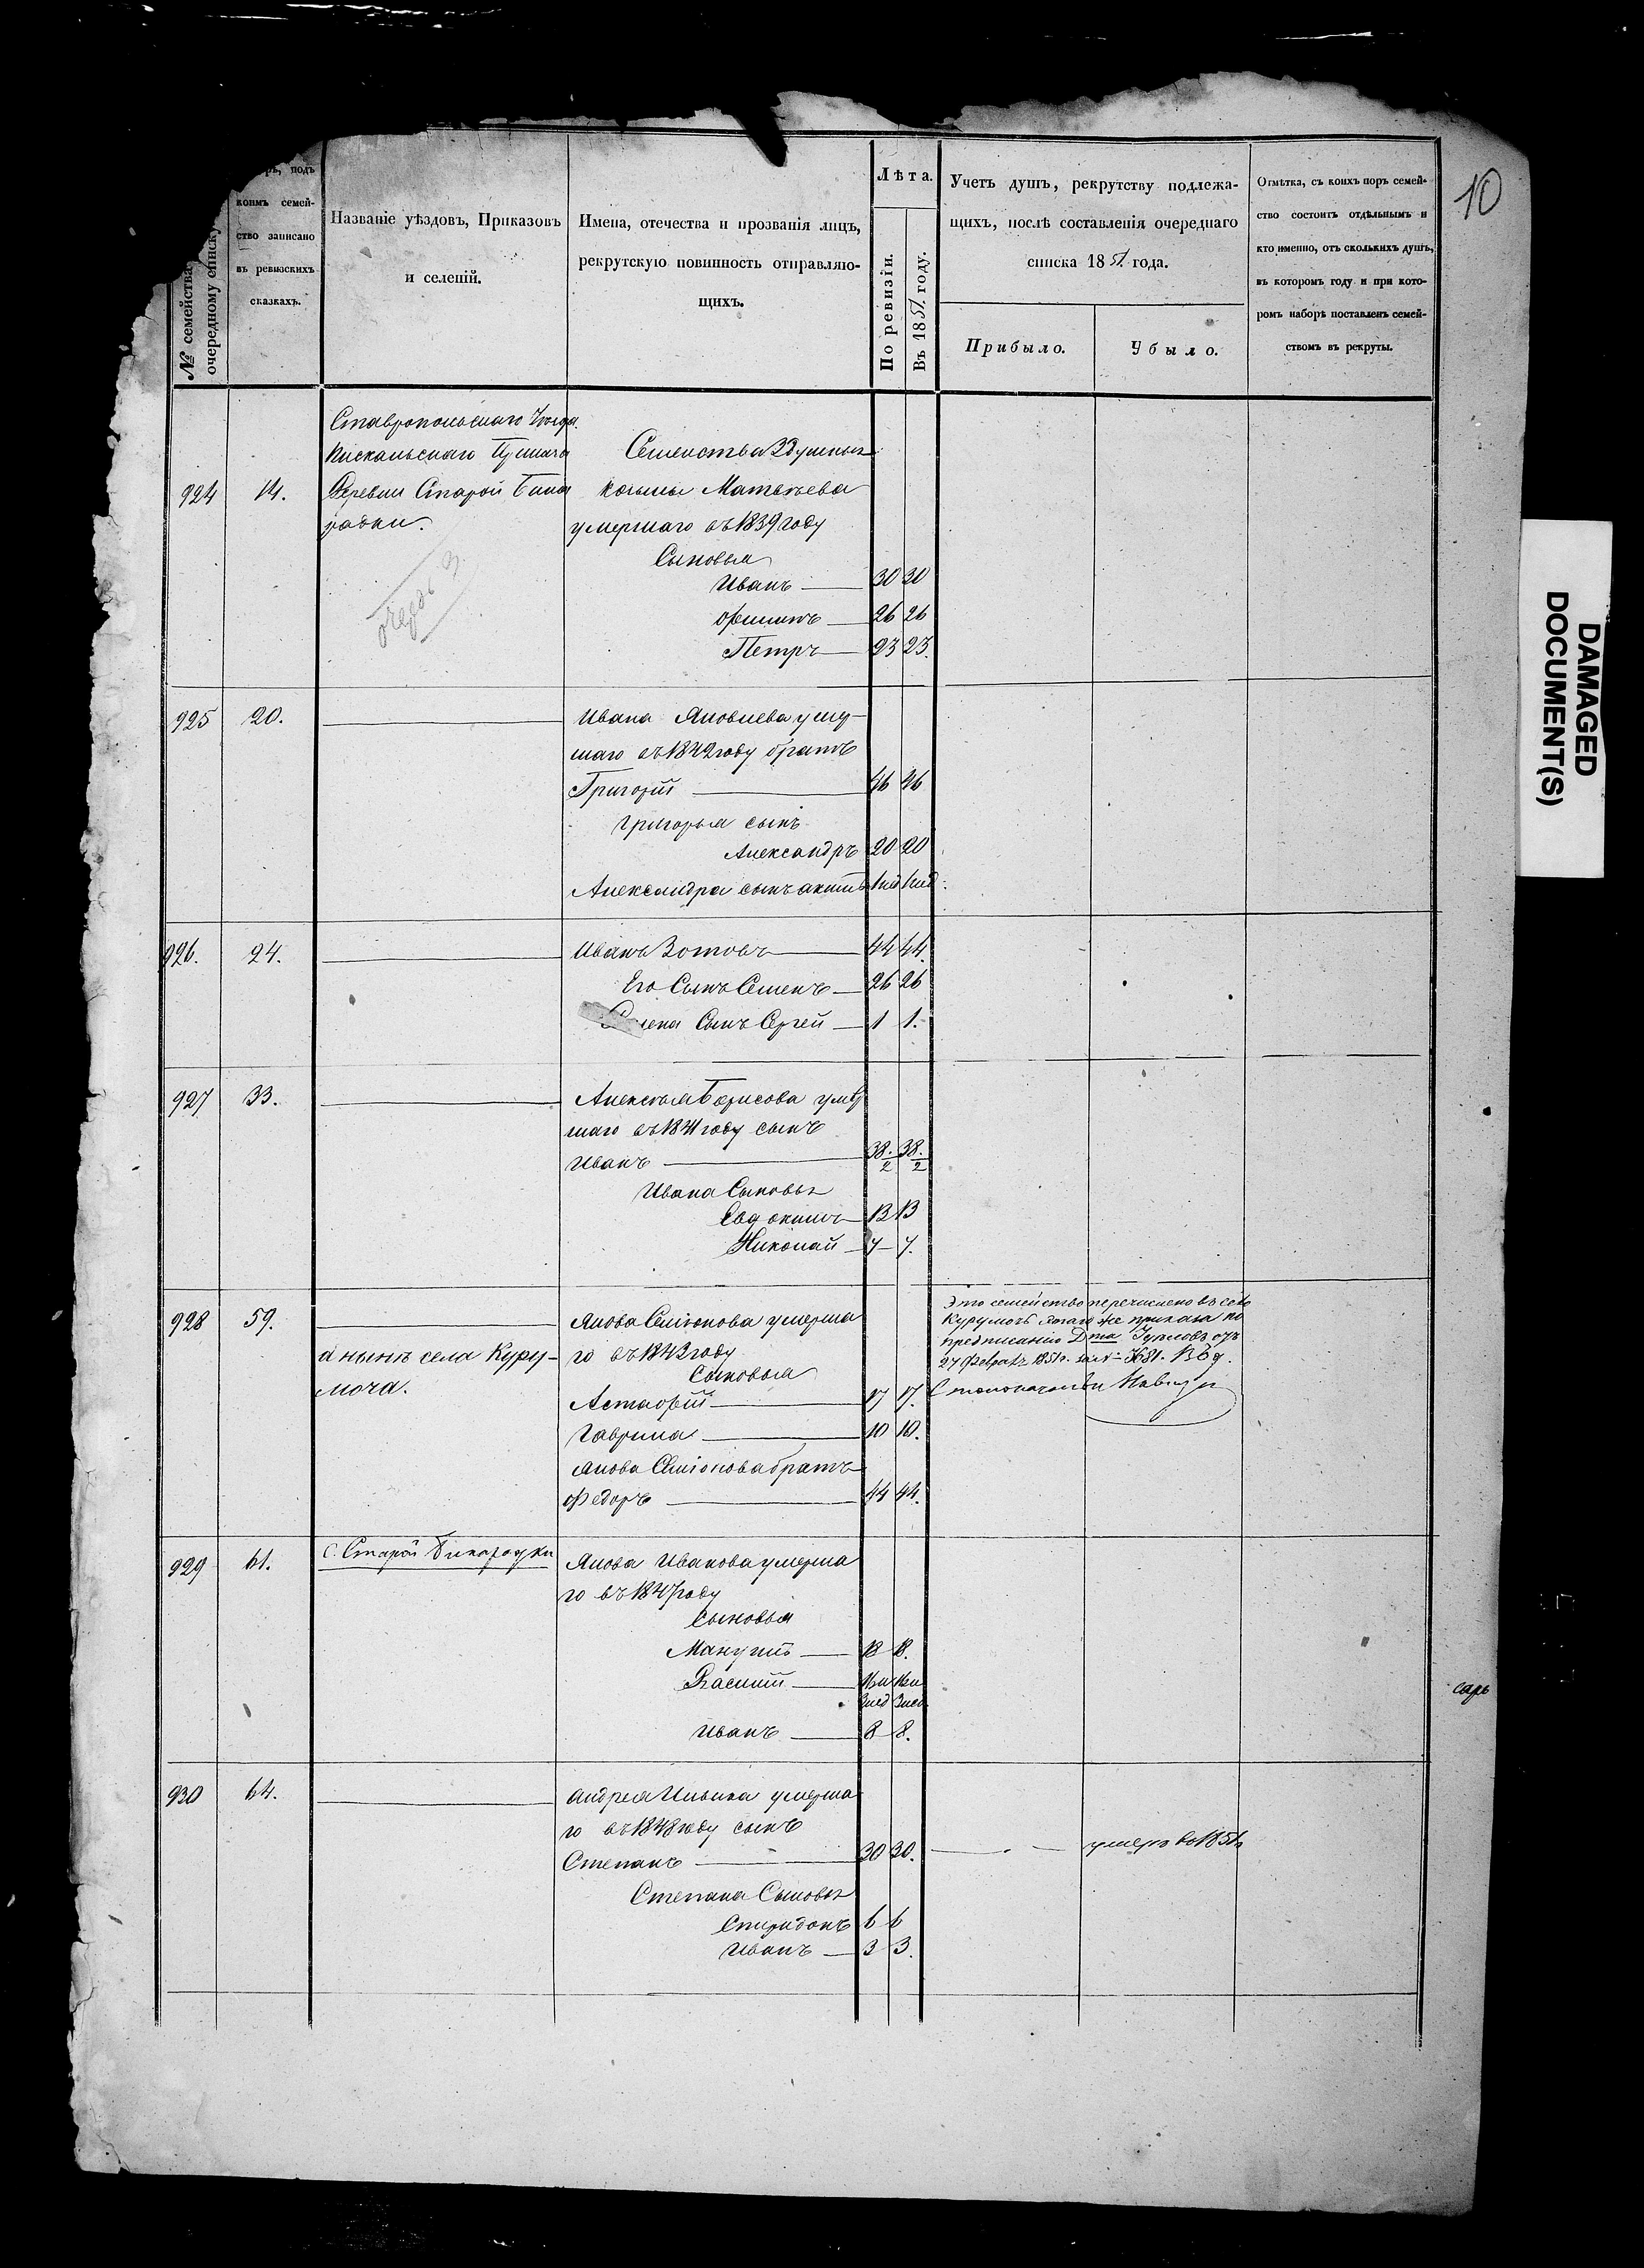 10
№ семейства
очередному списку
подъ
коимъ семей-
ство записано
въ ревизскихъ
сказкахъ.
Названіе уѣздовъ, Приказовъ
и селеній.
Имена, отечества и прозванія лицъ,
рекрутскую повинность отправляю-
щихъ.
Лѣта.
По ревизіи.
Въ 1851 году.
Учетъ душъ, рекрутству подлежа-
щихъ, послѣ составленія очереднаго
списка 1851 года.
Прибыло.
Убыло.
Отмѣтка, съ коихъ поръ семей-
ство состоитъ отдѣльнымъ и
кто именно, отъ сколькихъ душъ,
въ которомъ году и при кото-
ромъ наборѣ поставленъ семей-
ствомъ въ рекруты.
Ставропольскаго Уѣзда
Приказа
Деревни Старой Бина
радки.
очередь
924 14.
Семейства 3 душныя
Матвѣева
умершаго въ 1839 году
Сыновья
Иванъ 30 30
Филипъ 26 26
Петръ 23 23.
925 20.
Ивана Яковлева умер-
шаго въ 1842 году братъ
Григорій 46 46
Григорья сынъ
Александръ 20 20
Александра сынъ 1 нед 1 нед
926. 24.
Иванъ Зотовъ 44 44.
Его Сынъ Семенъ 26 26
Семена Сынъ Сергей 1 1.
927 33.
Алексѣя Борисова умер
шаго въ 1841 году сынъ
Иванъ 38. 1/2 38. 1/2
Ивана Сыновья
Евдокимъ 13 13
Николай 7 7.
928 59.
а нынѣ села Куру-
моча.
Якова Семіонова умерша
го въ 1843 году
Сыновья
Астафій 17 17.
Гаврила 10 10.
Якова Семіонова братъ
Федоръ 44 44.
Это семейство перечислено въ село
Курумочъ того же приказа по
предписанію
27 Февраля 1851 г. за № 3681.
929 61.
с. Старой Бинарадки
Якова Иванова умерша
го въ 1847 году
Сыновья
Мануилъ 18 18.
Василій
3 нед 3 нед
Иванъ 8 8.
930 64.
Андрея Ильина умерша
го въ 1848 году сынъ
Степанъ 30 30. умеръ въ 1851 г.
Степана Сыновья
Спиридонъ 6 6
Иванъ 3 3.
DAMAGED
DOCUMENT(S)